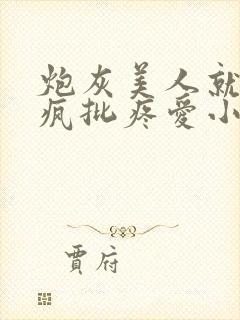 炮灰美人就
疯批疼爱小
贾府